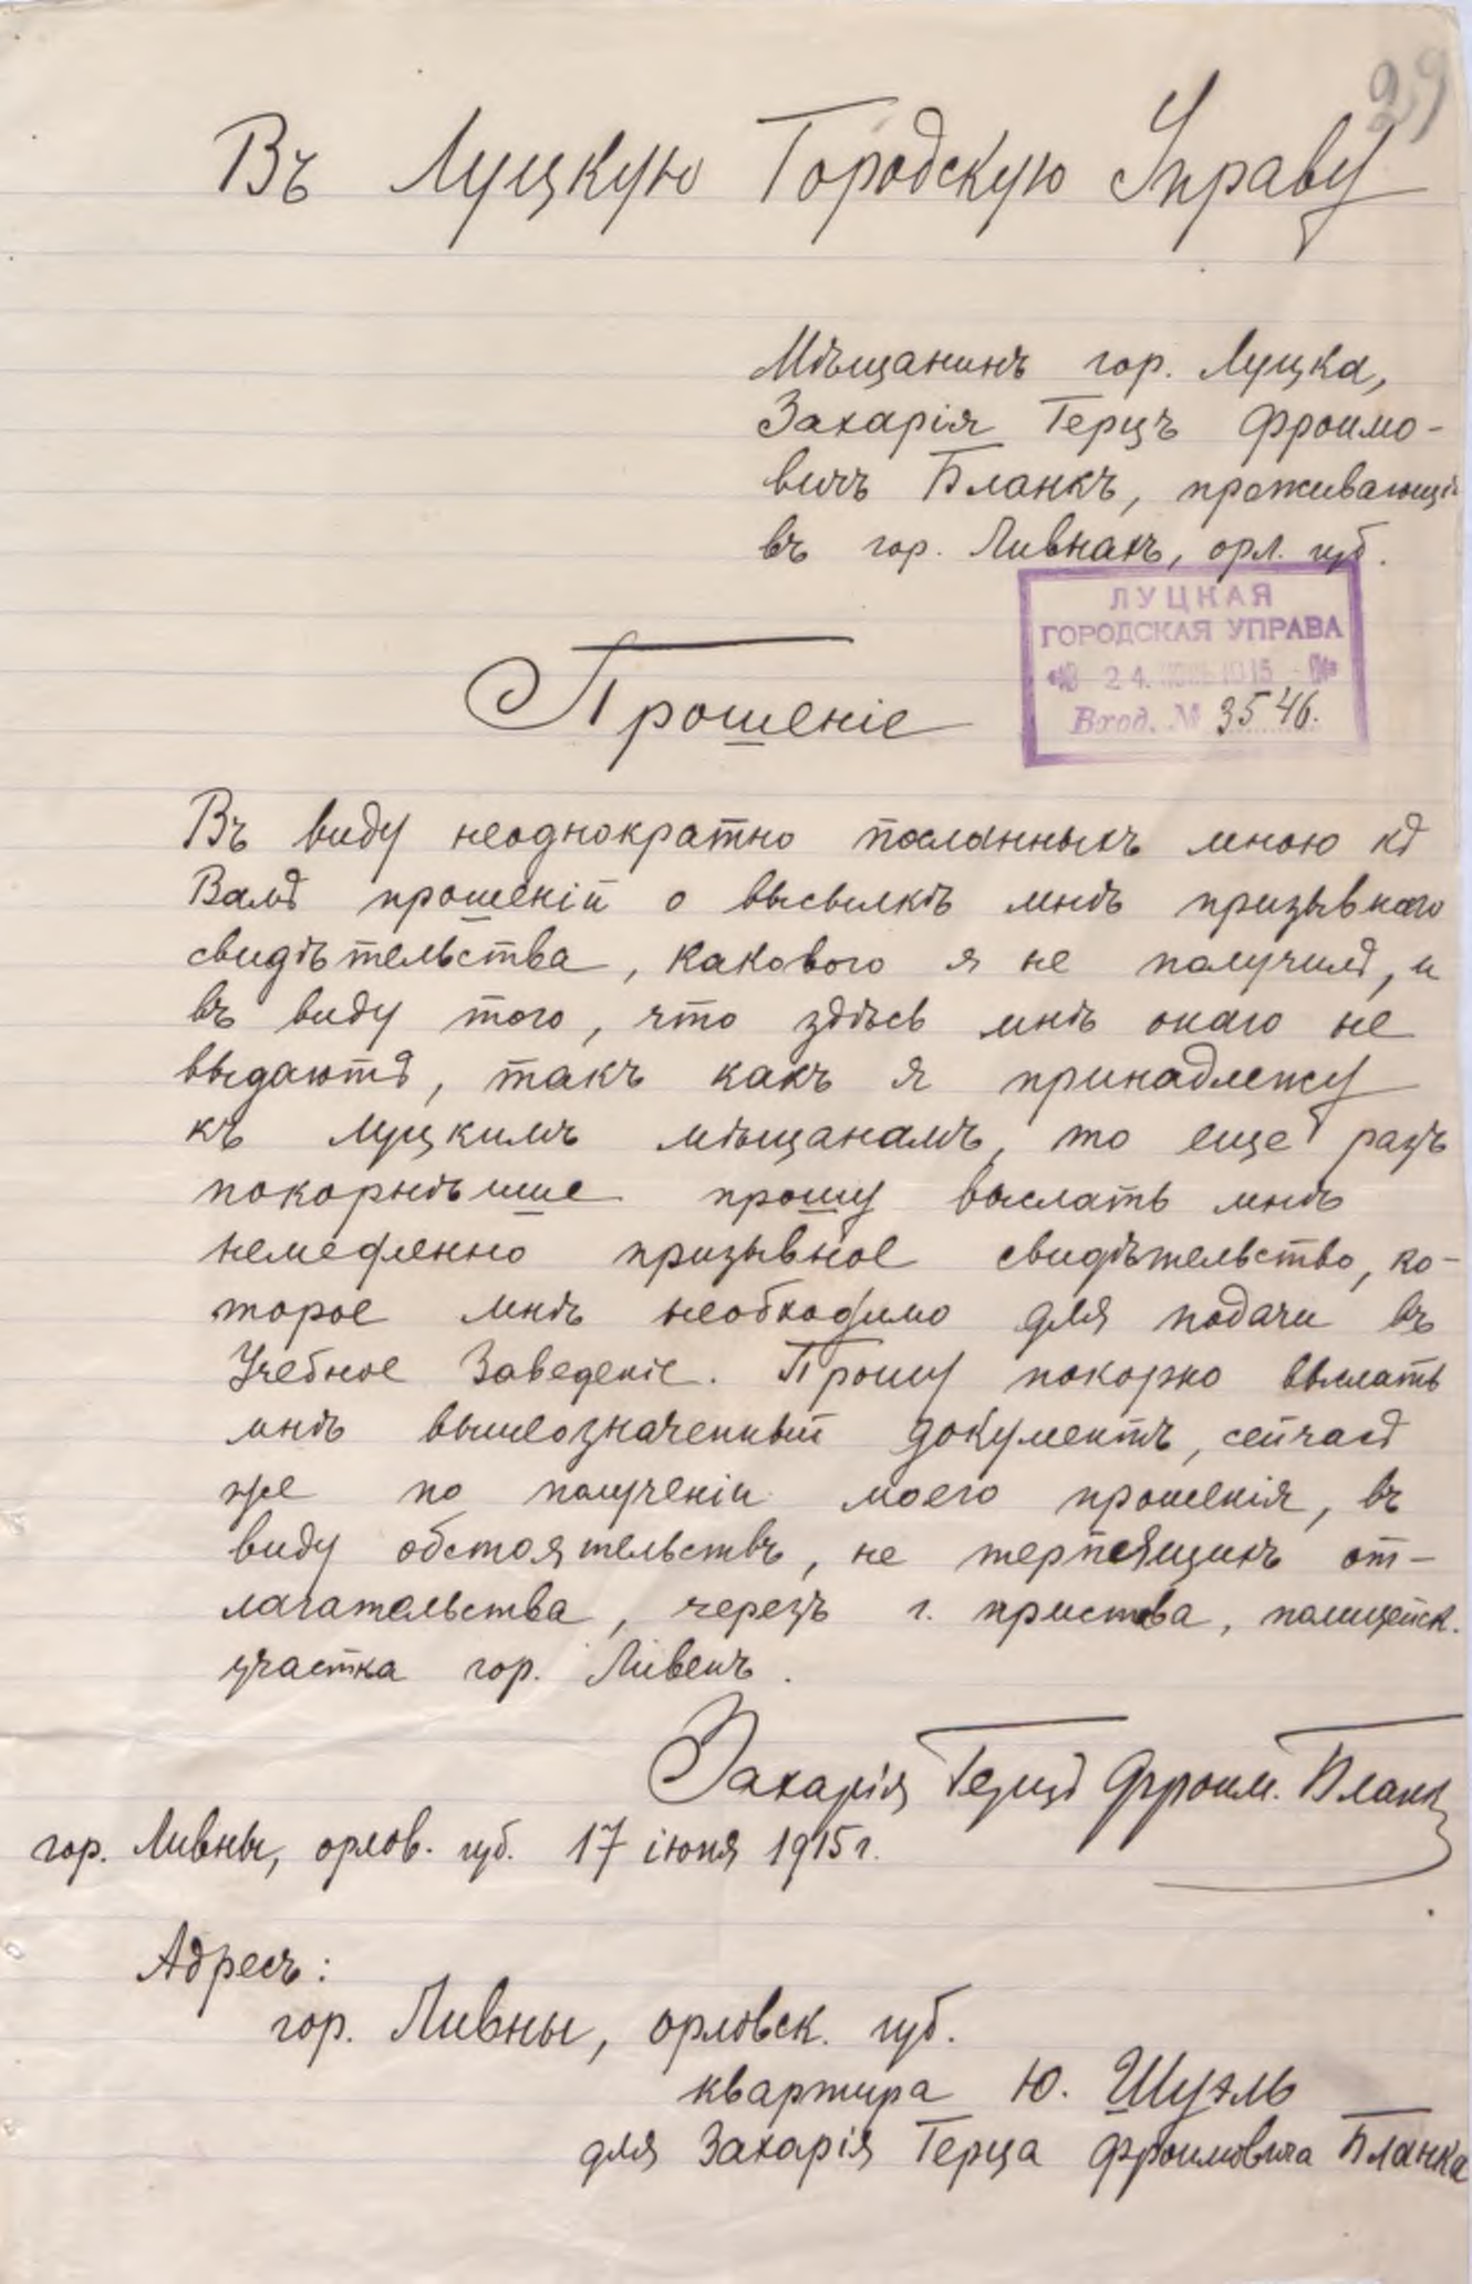 29
Въ Луцкую Городскую Управу
Мѣщанинъ гор. Луцка,
Захарія Герцъ Фроимо-
вичъ Бланкъ, проживающі
въ гор. Ливнахъ, орл. губ.
ЛУЦКАЯ
ГОРОДСКАЯ УПРАВА
24.
Вход. № 3546.
Прошеніе
Въ виду неоднократно посланныхъ мною къ
Вамъ прошеній о высылкѣ мнѣ призывнаго
свидѣтельства, какового я не получилъ, и
въ виду того, что здѣсь мнѣ онаго не
выдаютъ, такъ какъ я принадлежу
къ луцкимъ мѣщанамъ, то еще разъ
покорнѣйше прошу выслать мнѣ
немедленно призывное свидѣтельство, ко-
торое мнѣ необходимо для подачи въ
Учебное Заведеніе. Прошу покорно выслать
мнѣ вышеозначенный документъ, сейчасъ
же по полученіи моего прошенія, въ
виду обстоятельствъ, не терпящихъ от-
лагательства, черезъ г. пристава, полицейск.
участка гор. Ливенъ.
Захарія Герцъ Фроим. Бланкъ
гор. Ливны, орлов. губ. 17 іюня 1915 г.
Адресъ:
гор. Ливны, орловск. губ.
квартира Ю. Шуэль
для Захарія Герца Фроимовича Бланка